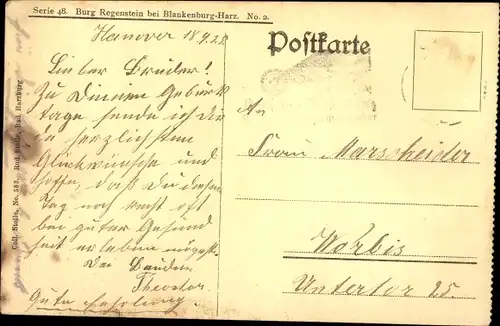 Serie 48. Burg Regenstein bei Blankenburg-Harz. No. 2.
Postkarte
Hannover 18 9. 25.
Lieber Bruder!
Zu Deinem Geburts
tage sende ich Dir
die herzlichsten
Glückwünsche und
hoffe, daß Du diesen
Tag noch recht oft
bei guter Gesund
heit erleben mögest.
Dein Bruder
Theodor.
Gute Erholung.
An
Frau Marscheider
Worbis
Untertor 25.
Coll. Stolle, No. 583. Rud. Stolle, Bad Harzburg